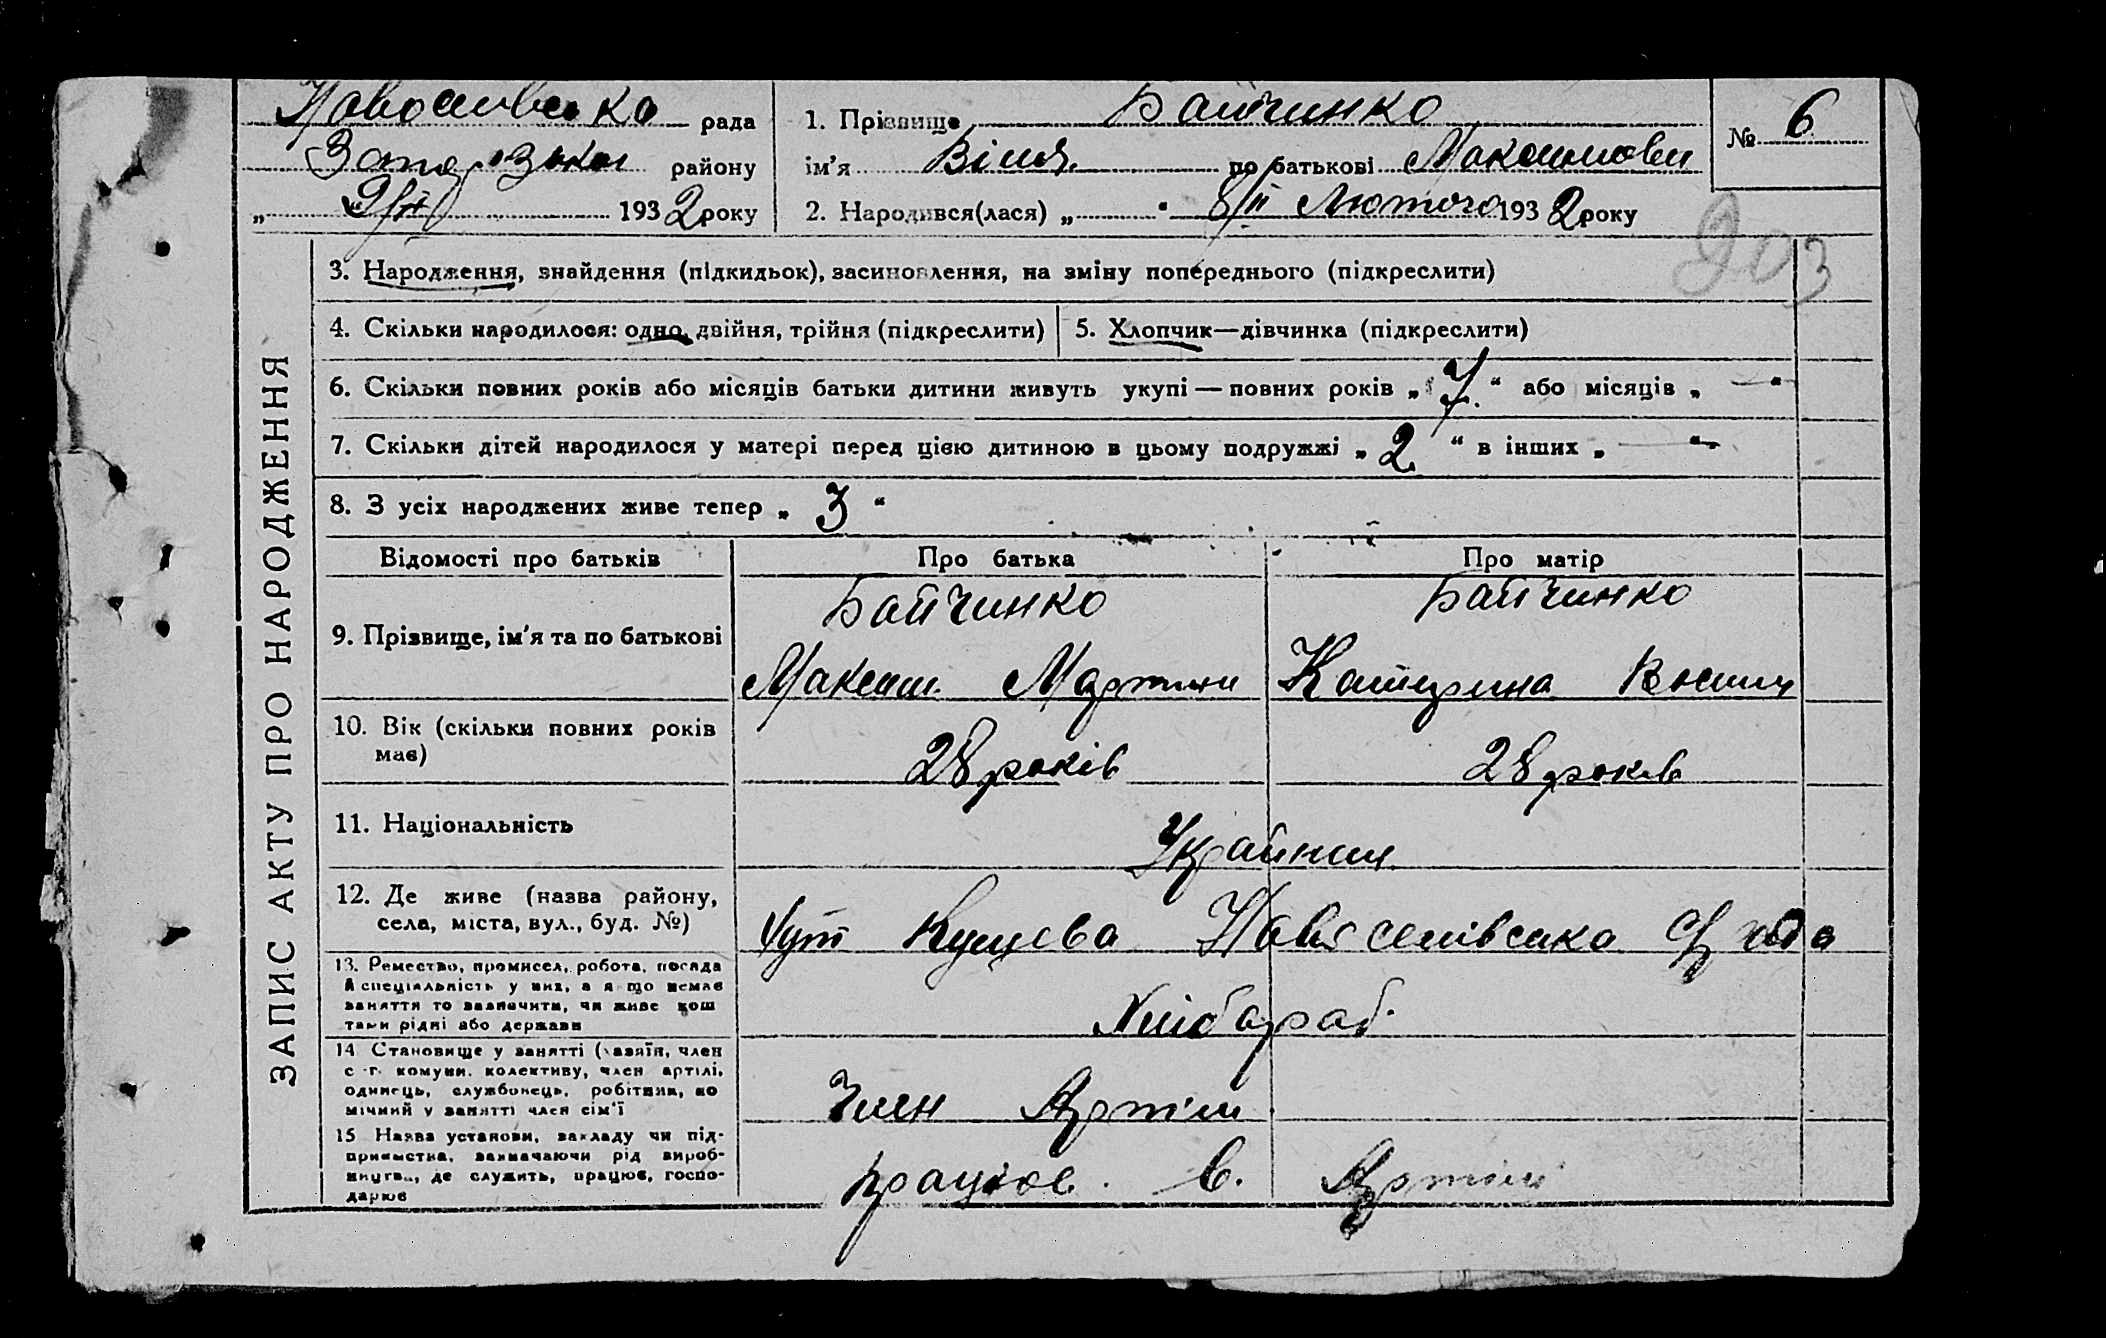 Новосилвска рада
району
„ 9/II 1932 року
1. Прізвище Байчинко
ім'я Віля по батькові Максимови
2. Народився(лася) „ " 8/II Лютого 1932 року
№ 6
903
ЗАПИС АКТУ ПРО НАРОДЖЕННЯ
3. Народження, знайдення (підкидьок), засиновлення, на зміну попереднього (підкреслити)
4. Скільки народилося: одно, двійня, трійня (підкреслити)
5. Хлопчик—дівчинка (підкреслити)
6. Скільки повних років або місяців батьки дитини живуть укупі — повних років „ 7 “ або місяців „ — “
7. Скільки дітей народилося у матері перед цією дитиною в цьому подружжі „ 2 “ в інших „ — “
8. З усіх народжених живе тепер „ 3 “
Відомості про батьків
Про батька
Про матір
9. Прізвище, ім'я та по батькові
Байчинко
Максим Мартин
Байчинко
Катерина
10. Вік (скільки повних років
має)
28 років
28 років
11. Національність
Українци
12. Де живе (назва району,
села, міста, вул., буд. №)
Хут Кущева Новоселівська С/рада
13. Ремество, промисел, робота, посада
й спеціальність у них, а якщо немає
заняття то зазначити, чи живе кош
тами рідні або держави
Хлібораб.
14 Становище у занятті (хазяїн, член
с.-г. комуни, колективу, член артілі,
одинець, службовець, робітник, по
мічний у занятті член сім'ї
Член Артіли
15 Назва установи, закладу чи під-
приємства, зазначаючи рід вироб-
ництва, де служить, працює, госпо-
дарює
працює в. Артіли